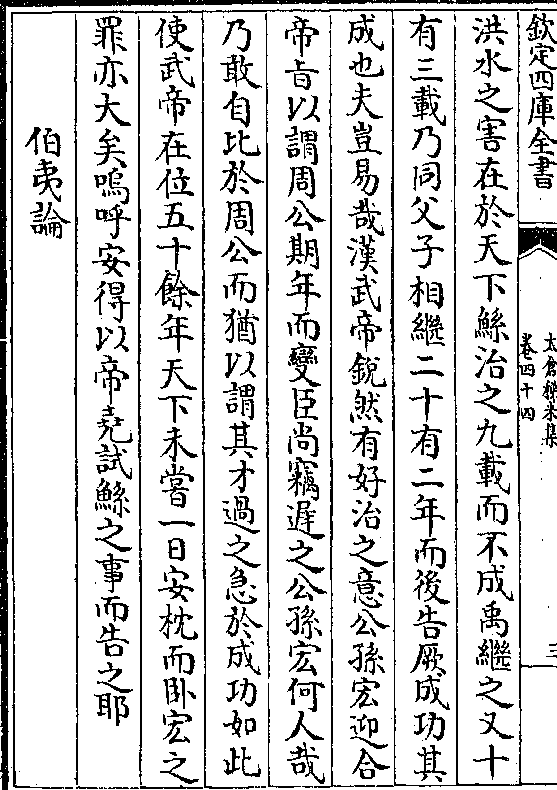 欽定四庫全書
太倉稊米集
卷四十四
三
洪水之害在於天下鯀治之九載而不成禹繼之又十
有三載乃同父子相繼二十有二年而後告厥成功其
成也夫豈易哉漢武帝銳然有好治之意公孫宏迎合
帝旨以謂周公期年而變臣尚竊遲之公孫宏何人哉
乃敢自比於周公而猶以謂其才過之急於成功如此
使武帝在位五十餘年天下未嘗一日安枕而卧宏之
罪亦大矣嗚呼安得以帝堯試鯀之事而告之耶
伯夷論